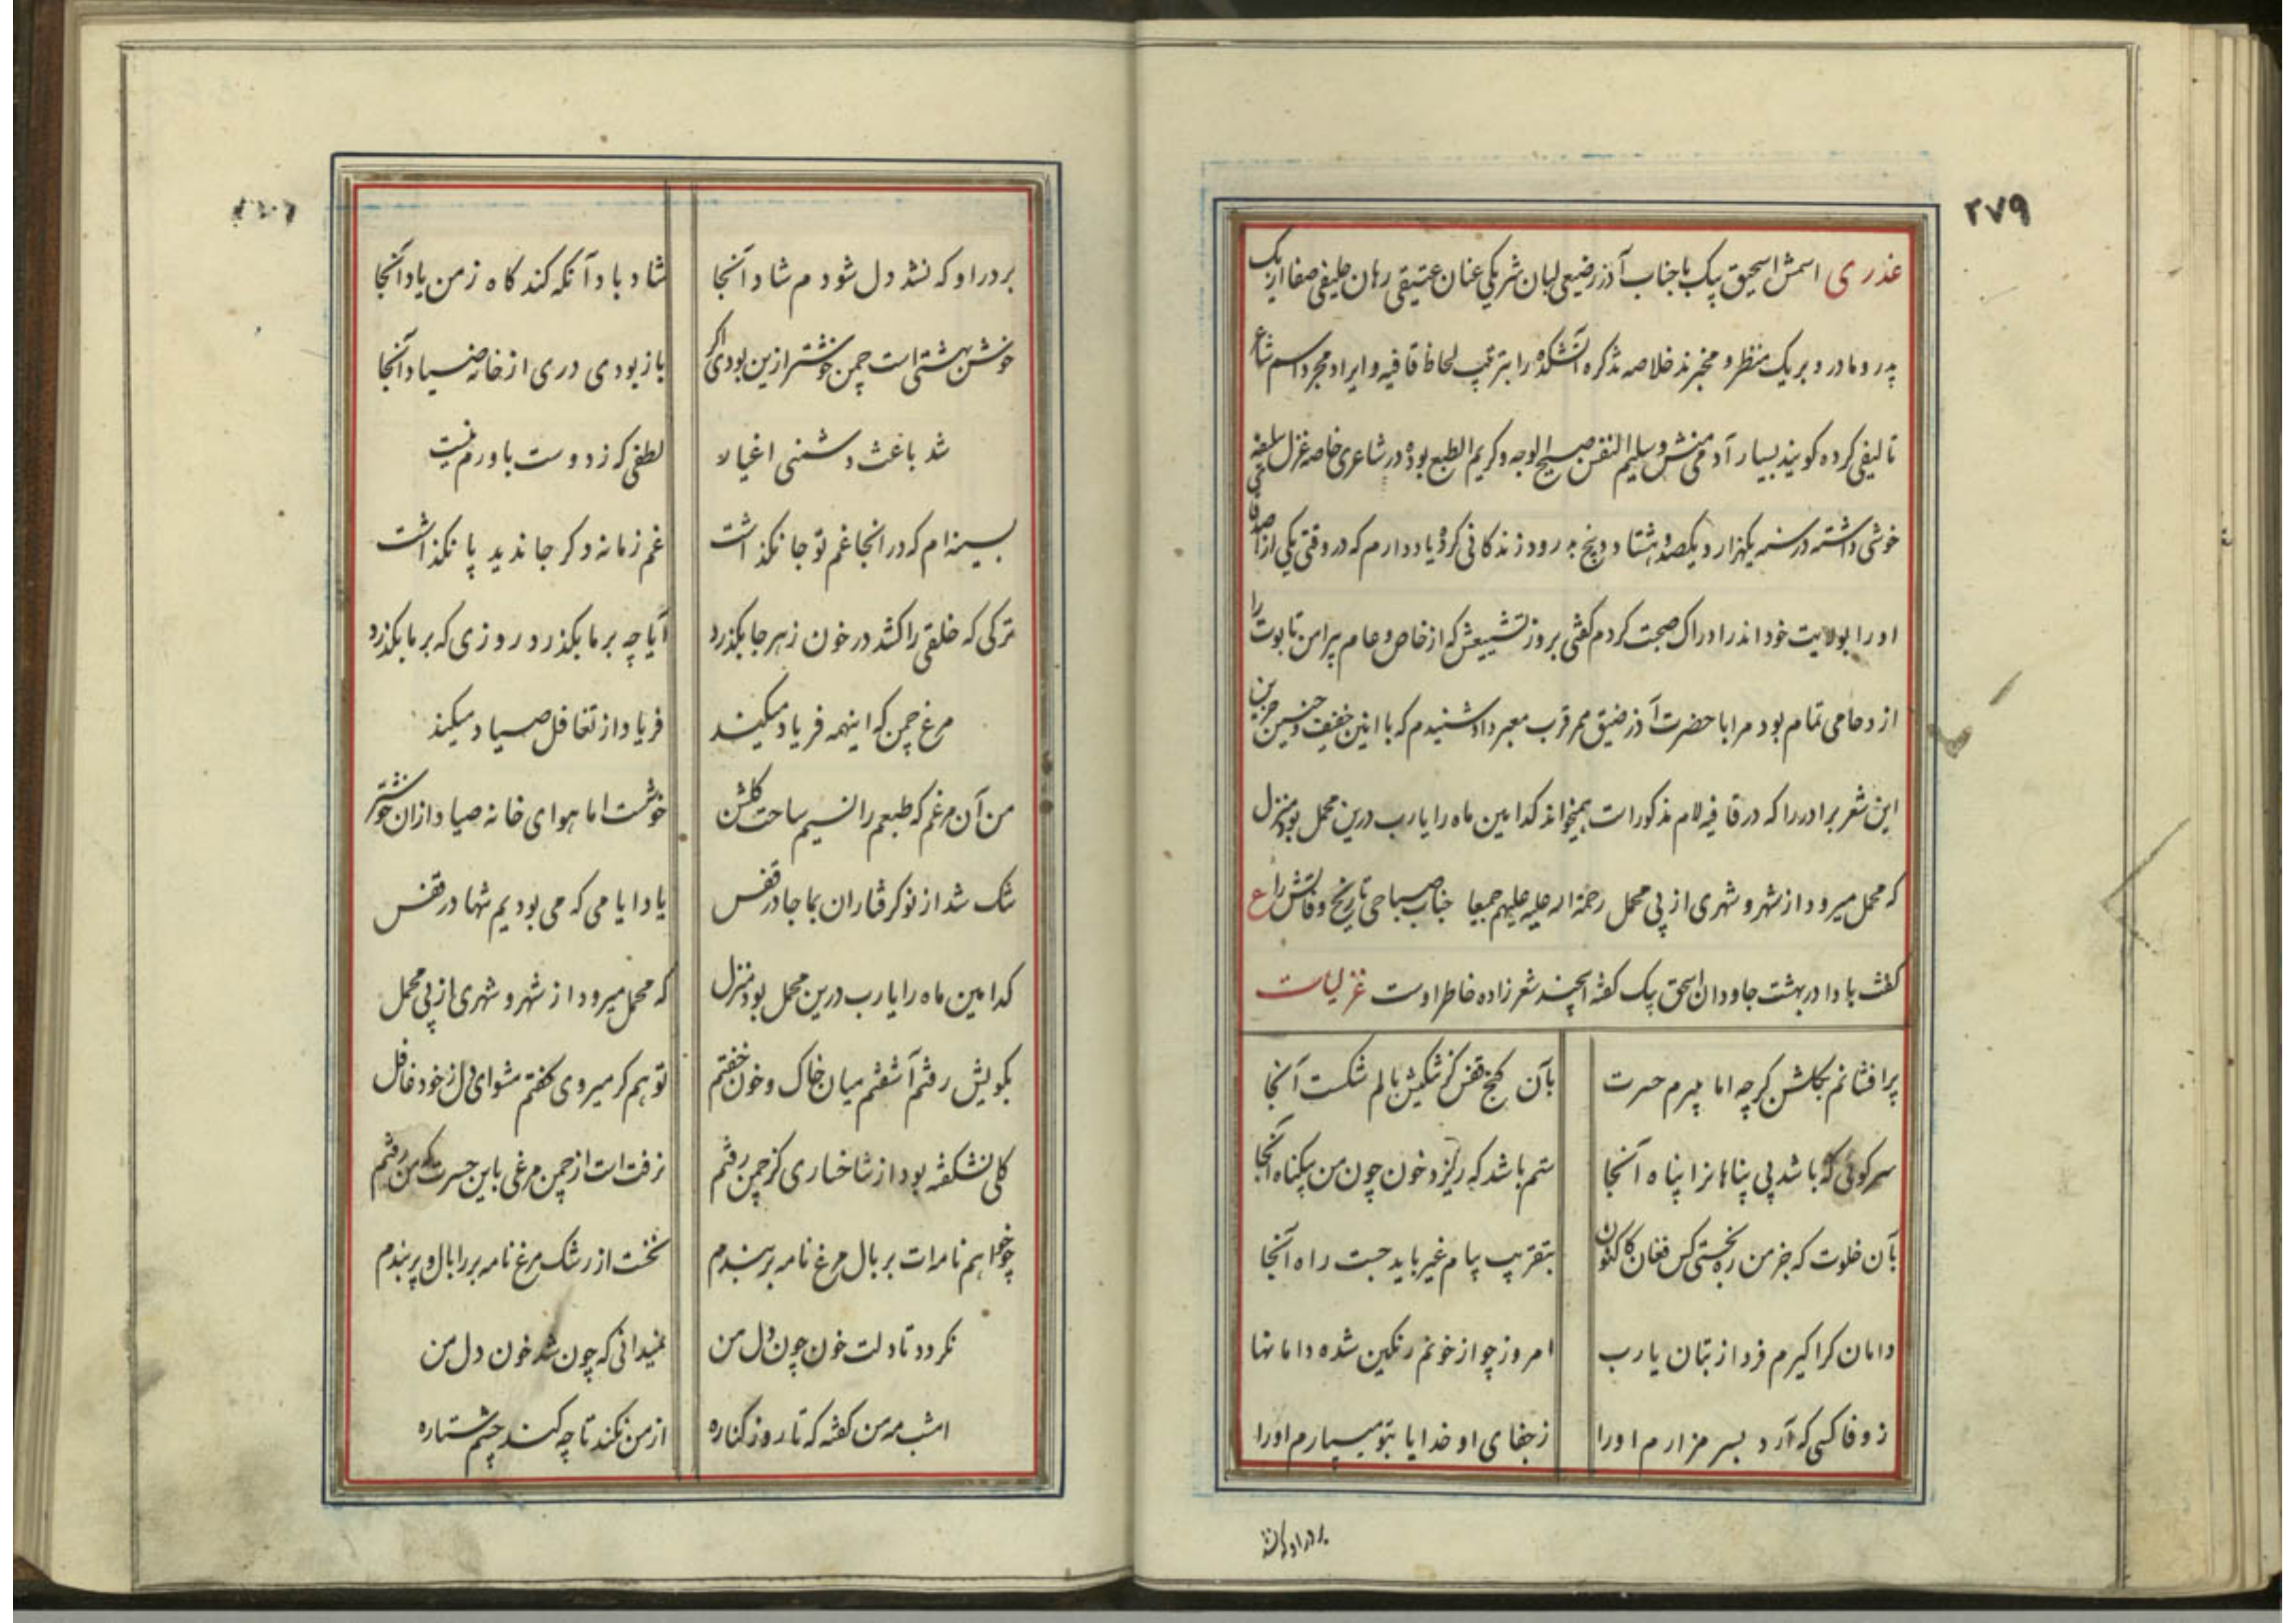 ۲۷۹
عذری اسمش اسحق بیک با جناب آذر رضیعی لبان شریکی عنان عتیقی رهان حلیفی صفا از یک
پدر و مادر و بر یک منظر و مخبرند خلاصه تذکره آتشکده را بترتیب لحاظ قافیه و ایراد مجرد اسم شاعر
تالیفی کرده کویند بسیار آدمی منش و سلیم النفس صبیح الوجه و کریم الطبع بوده در شاعری خاصه غزل سلیقه
خوشی داشته در سنه یکهزار و یکصد و هشتاد و پنج بدرود زندکانی کرد یاد دارم که در وقتی یکی از
او را بولایت خود اندر ادراک صحبت کردم کفتی بروز تشییعش که از خاص و عام پیرامن تابوت را
ازدحامی تمام بود مرا با حضرت آذر ضیق ممر قرب معبر داد شنیدم که با انین خفیف و حنین حزین
این شعر برادر را که در قافیه لام مذکورات همیخواند کدامین ماه را یا رب درین محمل بود منزل
که محمل میرود از شهر و شهری از پی محمل رحمة اله علیه علیهم جمیعا جناب صباحی تاریخ وفاتش را ع
کفت بادا در بهشت جاودان اسحق بیک کفته اینچند شعر زاده خاطر اوست غزلیات
پر افشانم بکلشن کرچه اما میبرم حسرت بآن کنج قفس کز شکنش بالم شکست آنجا
سر کوئی که باشد بی پناهانرا پناه آنجا ستم باشد که ریزد خون چون من بیکناه آنجا
بآن خلوت که جز من ره نجستی کس فغان کاکنون بتقریب پیام غیر باید جست راه آنجا
دامان کرا کیرم فردا ز بتان یا رب امروز چو از خونم رنکین شده دامانها
ز وفا کسی که آرد بسر مزارم او را ز جفای او خدایا بتو میسپارم او را
بر در او که نشد
بر در او که نشد دل شود م شاد آنجا شاد باد آنکه کند کاه ز من یاد آنجا
خوش بهشتی است چمن خوشتر ازین بودی اکر باز بودی دری از خانه صیاد آنجا
شد باعث دشمنی اغیار لطفی که ز دوست باورم نیست
بسینه ام که در انجا غم تو جا نکذاشت غم زمانه دکر جا ندید پا نکذاشت
ترکی که خلقی را کشد در خون ز هر جا بکذرد آیا چه بر ما بکذرد روزی که بر ما بکذرد
مرغ چمن که اینهمه فریاد میکند فریاد از تغافل صیاد میکند
من آن مرغم که طبعم را نسیم ساحت کلشن خوشست اما هوای خانه صیاد از آن خوشتر
تنک شد از نو کرفتاران بما جا در قفس یاد ایامی که می بودیم تنها در قفس
کدامین ماه را یا رب درین محمل بود منزل که محمل میرود از شهر و شهری از پی محمل
بکویش رفتم آشفتم میان خاک و خون خفتم تو هم کر میروی کفتم مشو ای دل ز خود غافل
کلی نشکفته بود از شاخساری کز چمن رفتم نرفت است از چمن مرغی باین حسرت که من رفتم
چو خواهم نامه ات بر بال مرغ نامه بر بندم نخست از رشک مرغ نامه بر را بال و پر بندم
نکردد تا دلت خون چون دل من نمیدانی که چون شد خون دل من
امشب مه من کفته که تا روز کناره از من نکند تا چه کند چشم ستاره